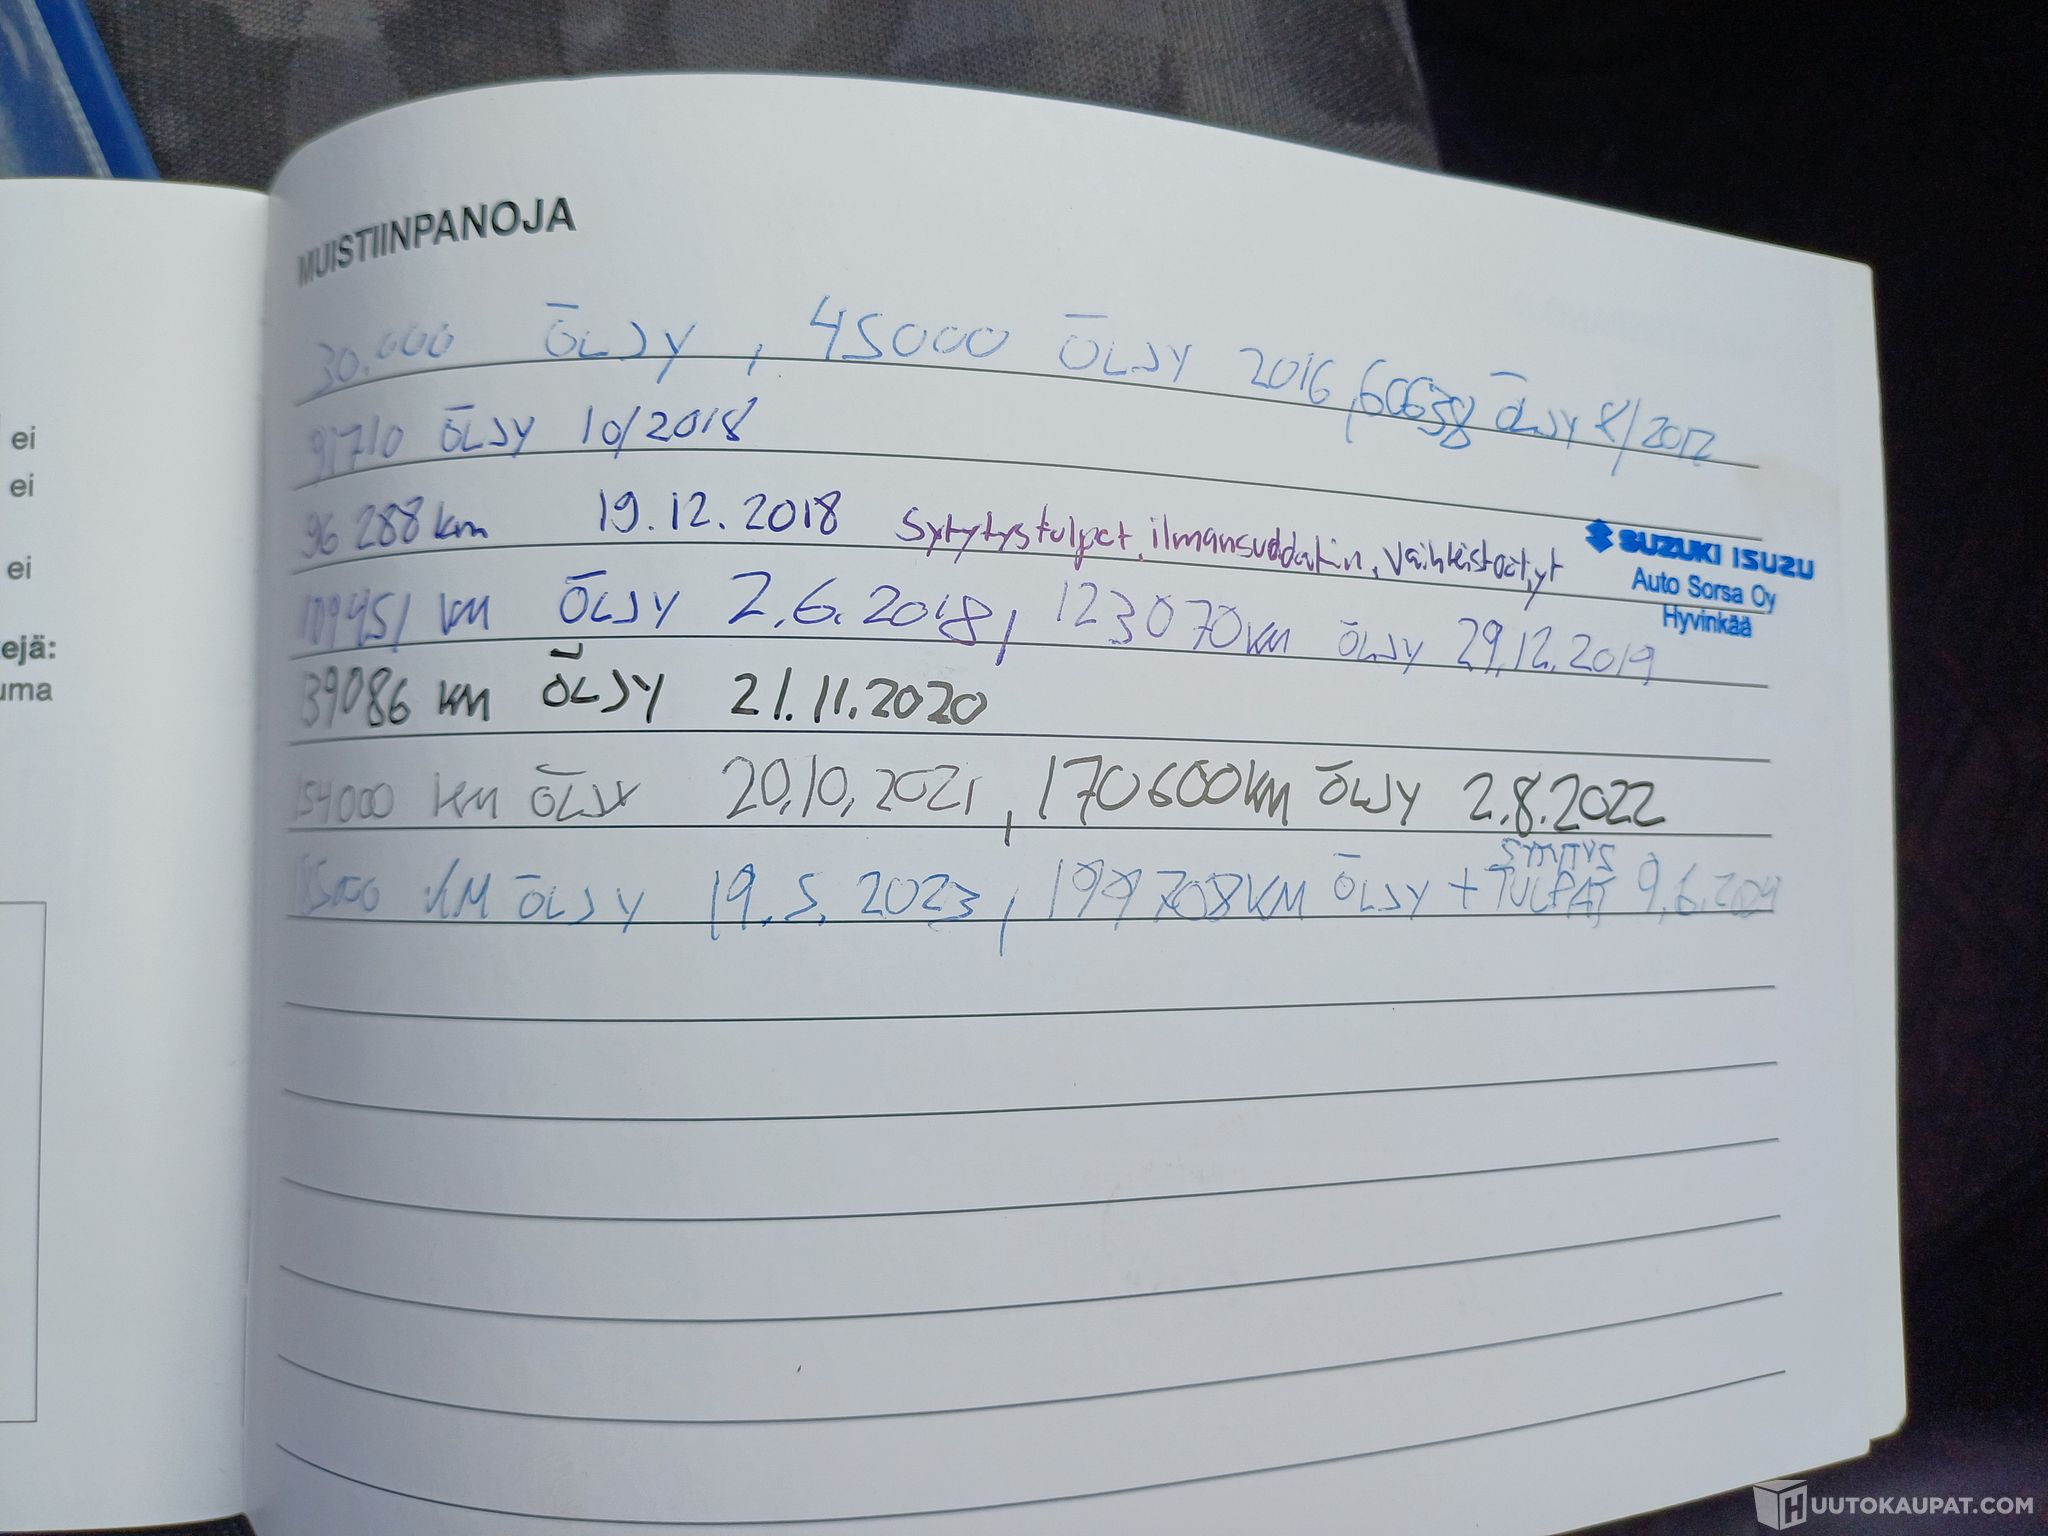 ei
ei
ei
ejä:
uma
MUISTIINPANOJA
30.000 ÖLJY, 45000 ÖLJY 2016, 60638 ÖLJY 8/2017
91710 ÖLJY 10/2018
96 288 km 19.12.2018 Sytytystulpat, ilmansuodatin, vaihteistoöljyt
SUZUKI ISUZU
Auto Sorsa Oy
Hyvinkää
109451 KM ÖLJY 2.6.2018, 123070KM ÖLJY 29.12.2019
139086 KM ÖLJY 21.11.2020
154000 KM ÖLJY 20.10.2021, 170600KM ÖLJY 2.8.2022
185000 KM ÖLJY 19.5.2023, 199708KM ÖLJY + SYTYTYS TULPAT 9.6.2024
HUUTOKAUPAT.COM